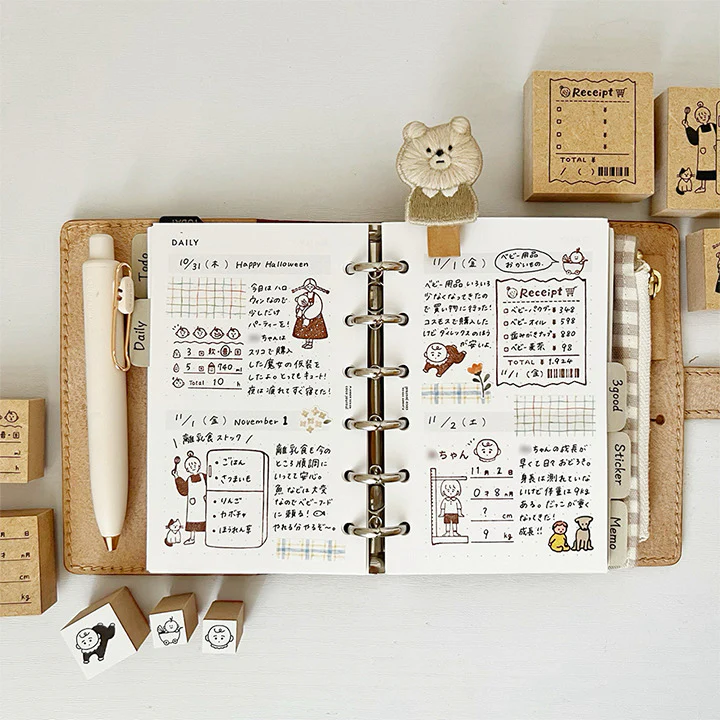 DAILY
10/31(木) Happy Halloween
今日はハロ
ウィンなので
少しだけ
パーティーを!
ちゃんは
スリコで購入
した魔女の仮装を
したよ。とってもキュート!
夜は疲れてすぐ寝てた!
3 回 軟・普・回
5 回 740 ml
Total 10 h
11/1(金) November 1
離乳食ストック
・ごはん
・さつまいも
・りんご
・カボチャ
・ほうれん草
離乳食も今の
ところ順調に
いってて安心。
魚などは大変
なのでベビーフード
に頼る!
やれる分やるぞ〜。
11/1(金)
ベビー用品
おかいもの.
ベビー用品いろいろ
少なくなってきたの
で買い物に行った!
コスモスで購入した
けどダイレックスのほう
が安いよ
Receipt
ベビーパウダー ¥348
ベビーオイル ¥598
歯みがきナップ ¥880
ベビー麦茶 ¥98
TOTAL ¥1,924
11/1(金)
11/2(土)
ちゃん
11月2日
0才8ヵ月
? cm
9 kg
ちゃんの成長が
早くて日々おどろく。
身長は測れていな
いけど体重は9kg
ある。だっこが重く
なってきた!
成長!!
Todo
Daily
3good
Sticker
Memo
Receipt
¥
¥
¥
TOTAL ¥
/ ( )
回
ヵ月
cm
kg